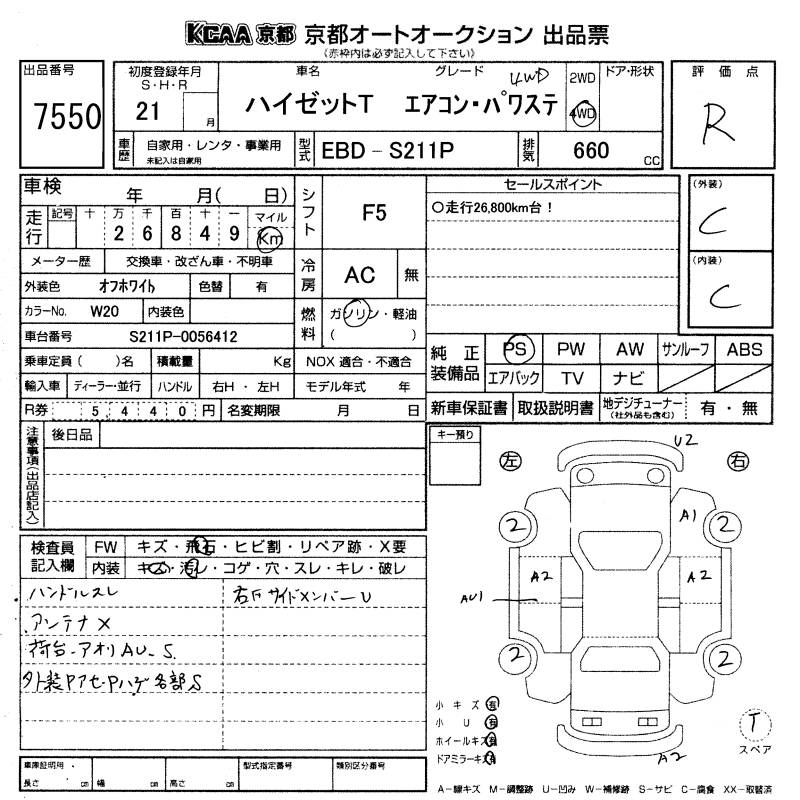 KCAA 京都 京都オートオークション 出品票
(赤枠内は必ず記入して下さい)
出品番号
7550
初度登録年月
S・H・R
21 月
車名 グレード 4WD
ハイゼットT エアコン・パワステ
2WD
4WD
ドア・形状
評価点
R
車歴
自家用・レンタ・事業用
未記入は自家用
型式 EBD-S211P
排気 660 CC
車検 年 月( 日)
シフト F5
セールスポイント
○走行26,800km台!
(外装)
C
(内装)
C
走行 記号 十 万 千 百 十 一 マイル
2 6 8 4 9 Km
メーター歴 交換車・改ざん車・不明車
冷房 AC 無
外装色 オフホワイト 色替 有
カラーNo. W20 内装色
燃料 ガソリン・軽油
( )
車台番号 S211P-0056412
乗車定員( )名 積載量 Kg NOX 適合・不適合
輸入車 ディーラー・並行 ハンドル 右H・左H モデル年式 年
R券 5 4 4 0 円 名変期限 月 日
純正装備品 PS PW AW サンルーフ ABS
エアバック TV ナビ
新車保証書 取扱説明書 地デジチューナー(社外品も含む) 有・無
注意事項(出品店記入)
後日品
キー預り
左
右
U2
A1
2
2
A2
A2
AU1
2
2
A2
T
スペア
検査員記入欄
FW キズ・飛石・ヒビ割・リペア跡・X要
内装 キズ・汚レ・コゲ・穴・スレ・キレ・破レ
ハンドルスレ
右下サイドメンバーU
アンテナX
荷台-アオリAU-S
外装Pアセ・Pハゲ各部S
小キズ有
小U有
ホイールキズ有
ドアミラーキズ有
車庫証明用
長さ cm 幅 cm 高さ cm
型式指定番号
類別区分番号
A-線キズ M-調整跡 U-凹み W-補修跡 S-サビ C-腐食 XX-取替済